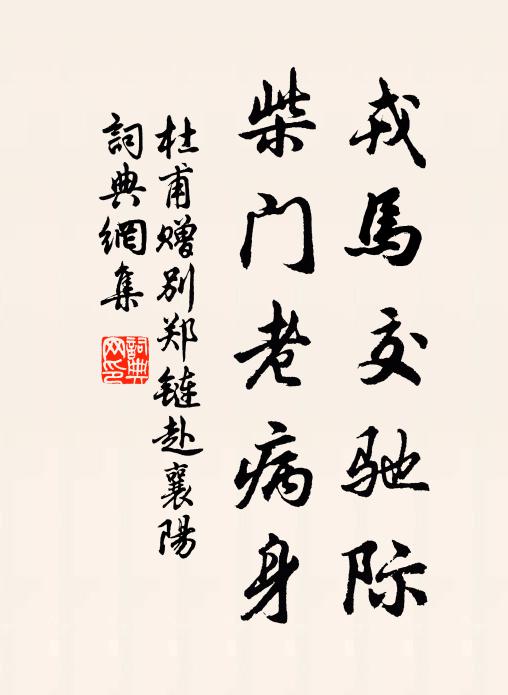 戎馬交驰际
柴门老病身
杜甫赠别郑链赴襄陽
詞典網集
詞典网印